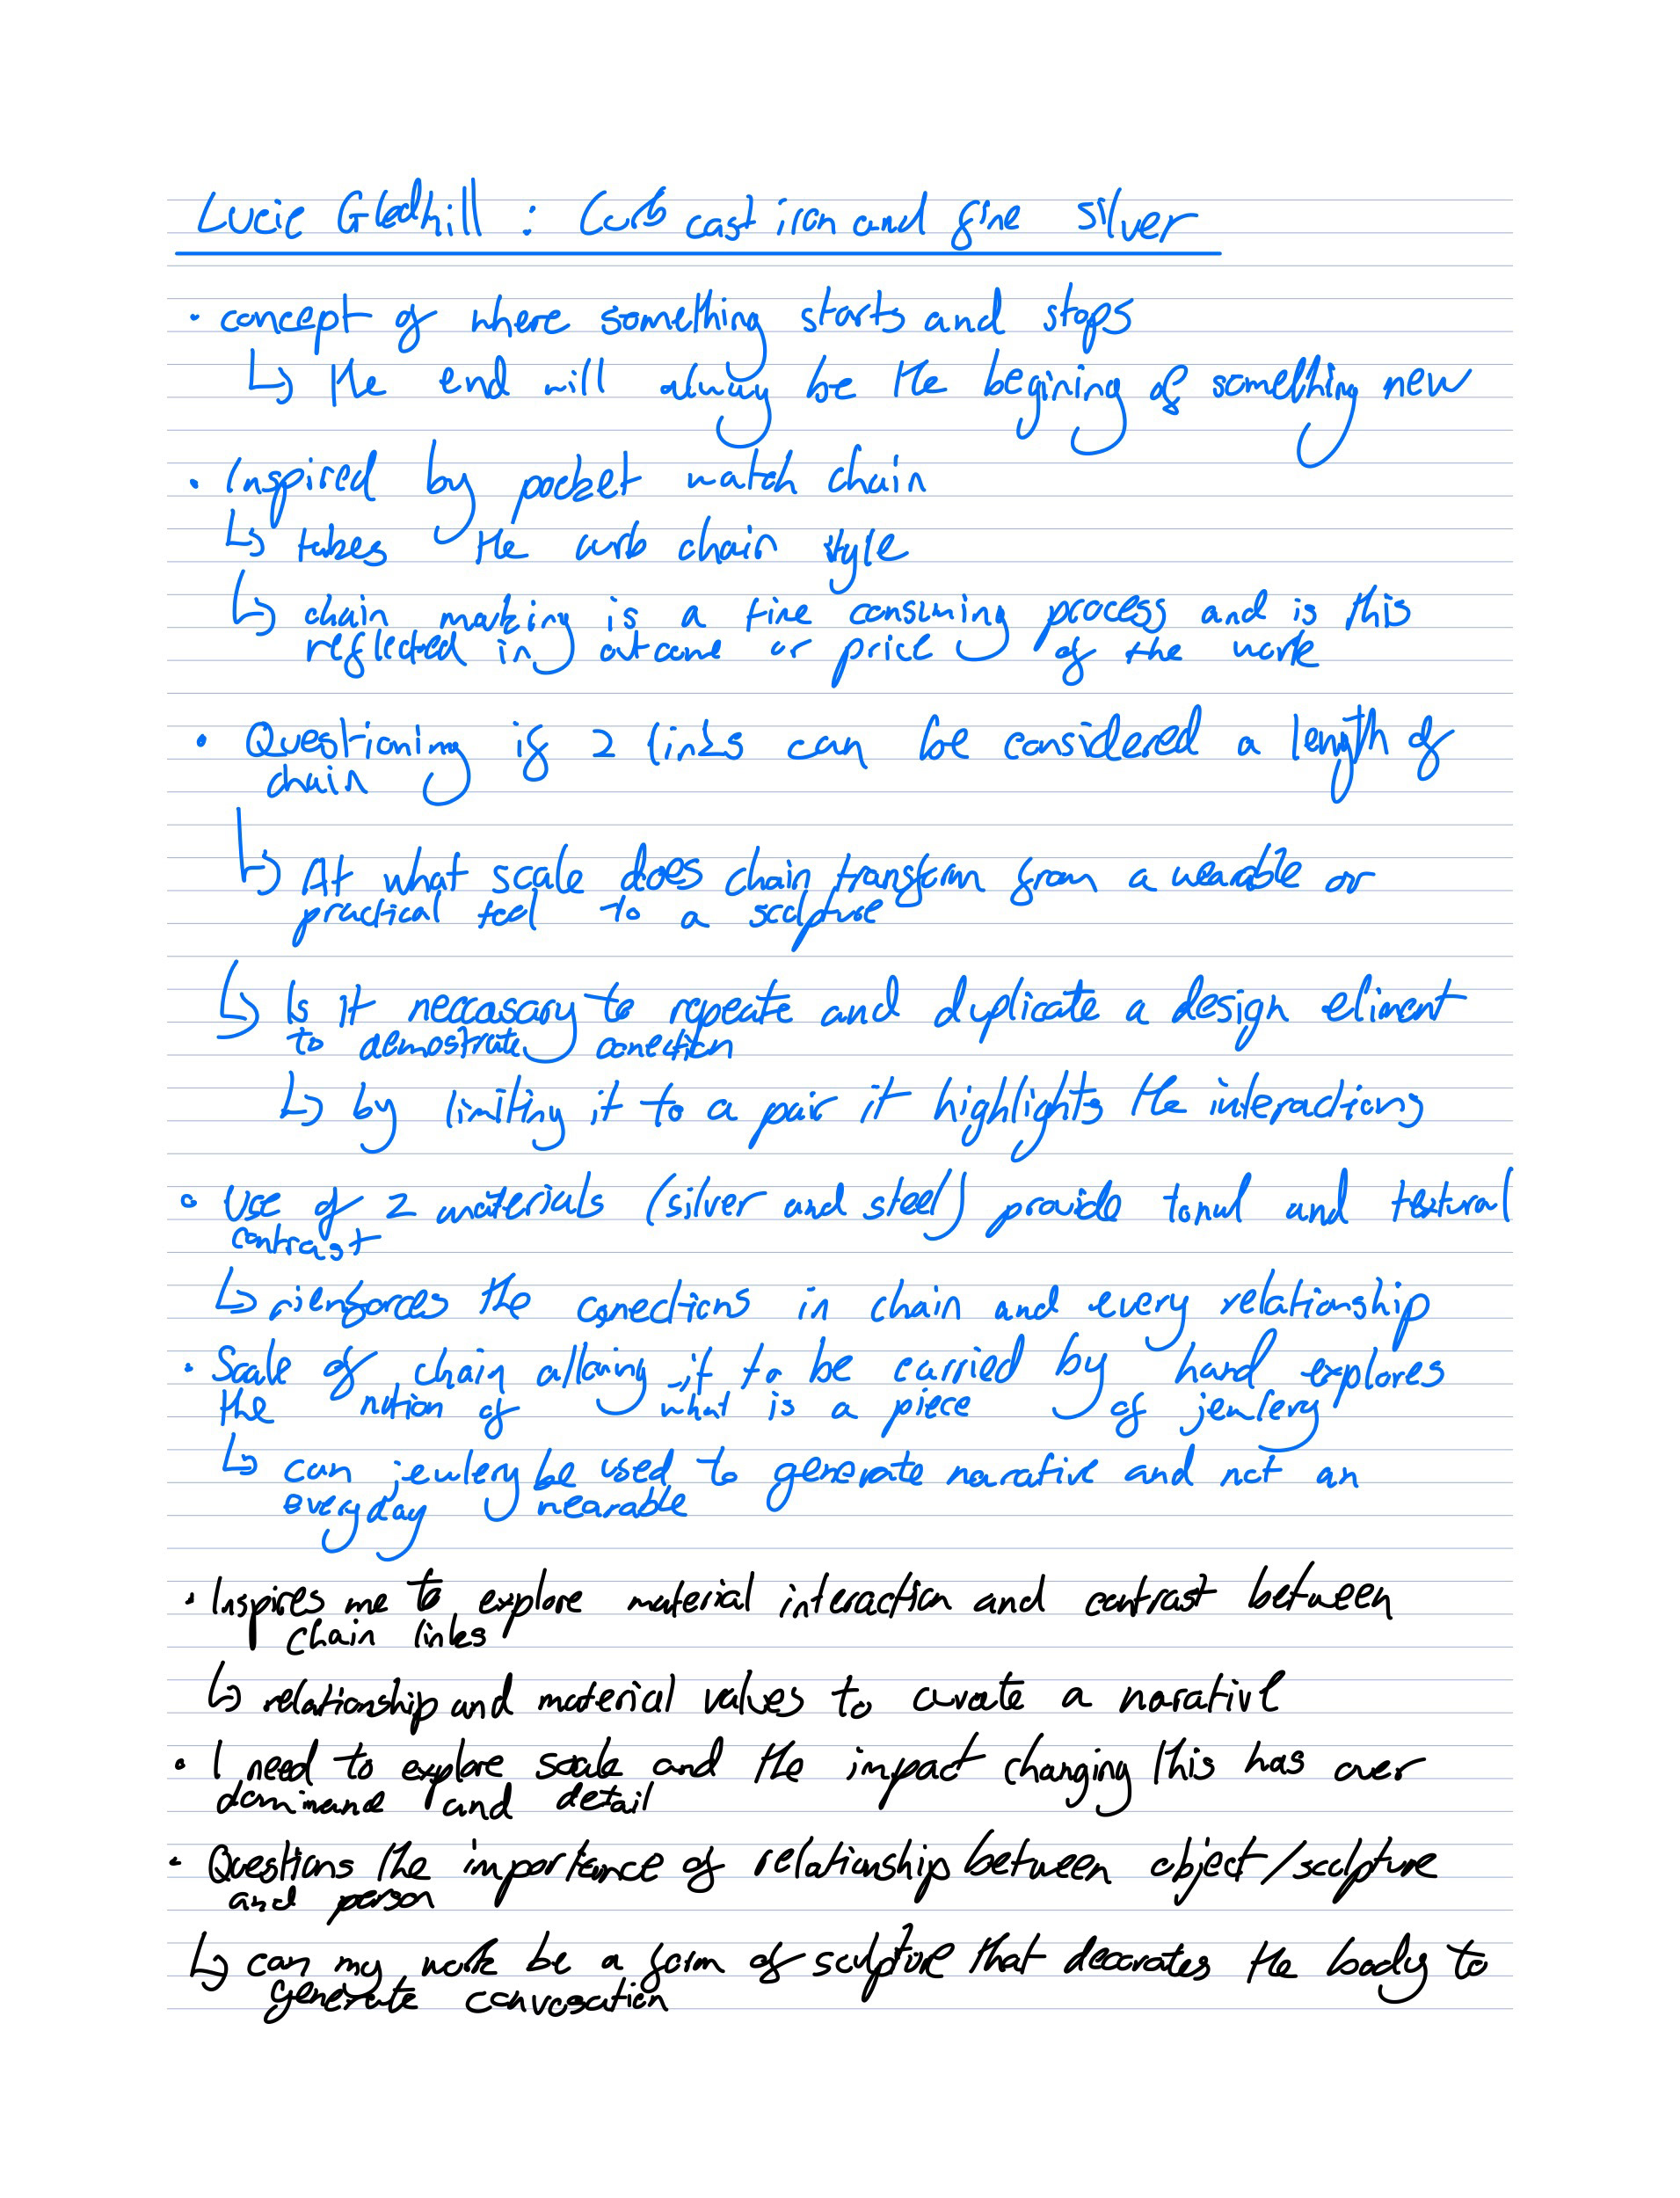 Lucie Gledhill : Curb cast iron and fine silver
· concept of where something starts and stops
↳ the end will alway be the begining of something new
· Inspired by pocket watch chain
↳ takes the curb chain style
↳ chain making is a time consuming process and is this
reflected in outcome or price of the work
· Questioning if 2 links can be considered a length of
chain
↳ At what scale does chain transform from a wearable or
practical feel to a sculpture
↳ Is it neccasary to repeate and duplicate a design eliment
to demostrate conection
↳ by limiting it to a pair it highlights the interactions
· Use of 2 materials (silver and steel) provide tonal and textural
contrast
↳ rienforces the conections in chain and every relationship
· Scale of chain allowing it to be carried by hand explores
the notion of what is a piece of jewlery
↳ can jewlery be used to generate narative and not an
everyday wearable
· Inspires me to explore material interaction and contrast between
chain links
↳ relationship and material values to curate a narative
· I need to explore scale and the impact changing this has over
dominance and detail
· Questions the importance of relationship between object/sculpture
and person
↳ can my work be a form of sculpture that decorates the body to
generate convosation